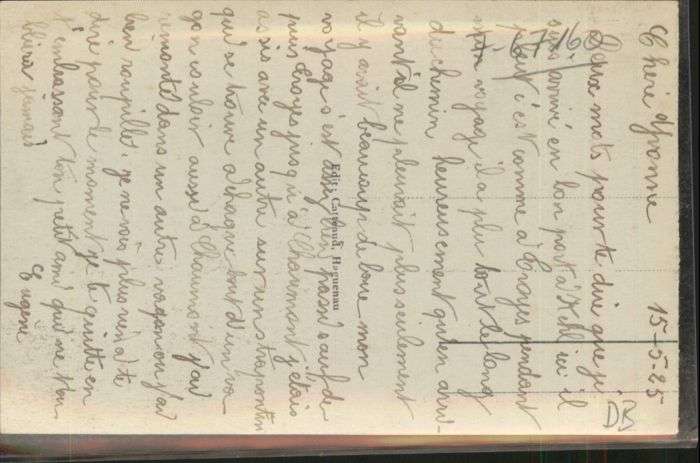 15-5-25
Chérie Yvonne
Deux mots pour te dire que je
suis arrivé en bon port à Kehl ici il
pleut c'est comme à Troyes pendant
voyage il a plu tout le long
du chemin heureusement qu'en arri-
vant il ne pleuvait plus seulement
il y avait beaucoup de boue mon
voyage s'est assez bien passé sauf de
puis Troyes jusqu'à Chaumont j'étais
assis avec un autre sur un strapontin
qui se trouve à chaque bout d'un va
gon couloir aussi à Chaumont j'ai
remonté dans un autre wagon ou j'ai
bien roupillé. je ne vois plus rien à te
dire pour le moment je te quitte en
t'embrassant ton petit ami qui ne t'ou
bliera jamais
Eugène
17168
DB
Edit. Gambaud, Haguenau